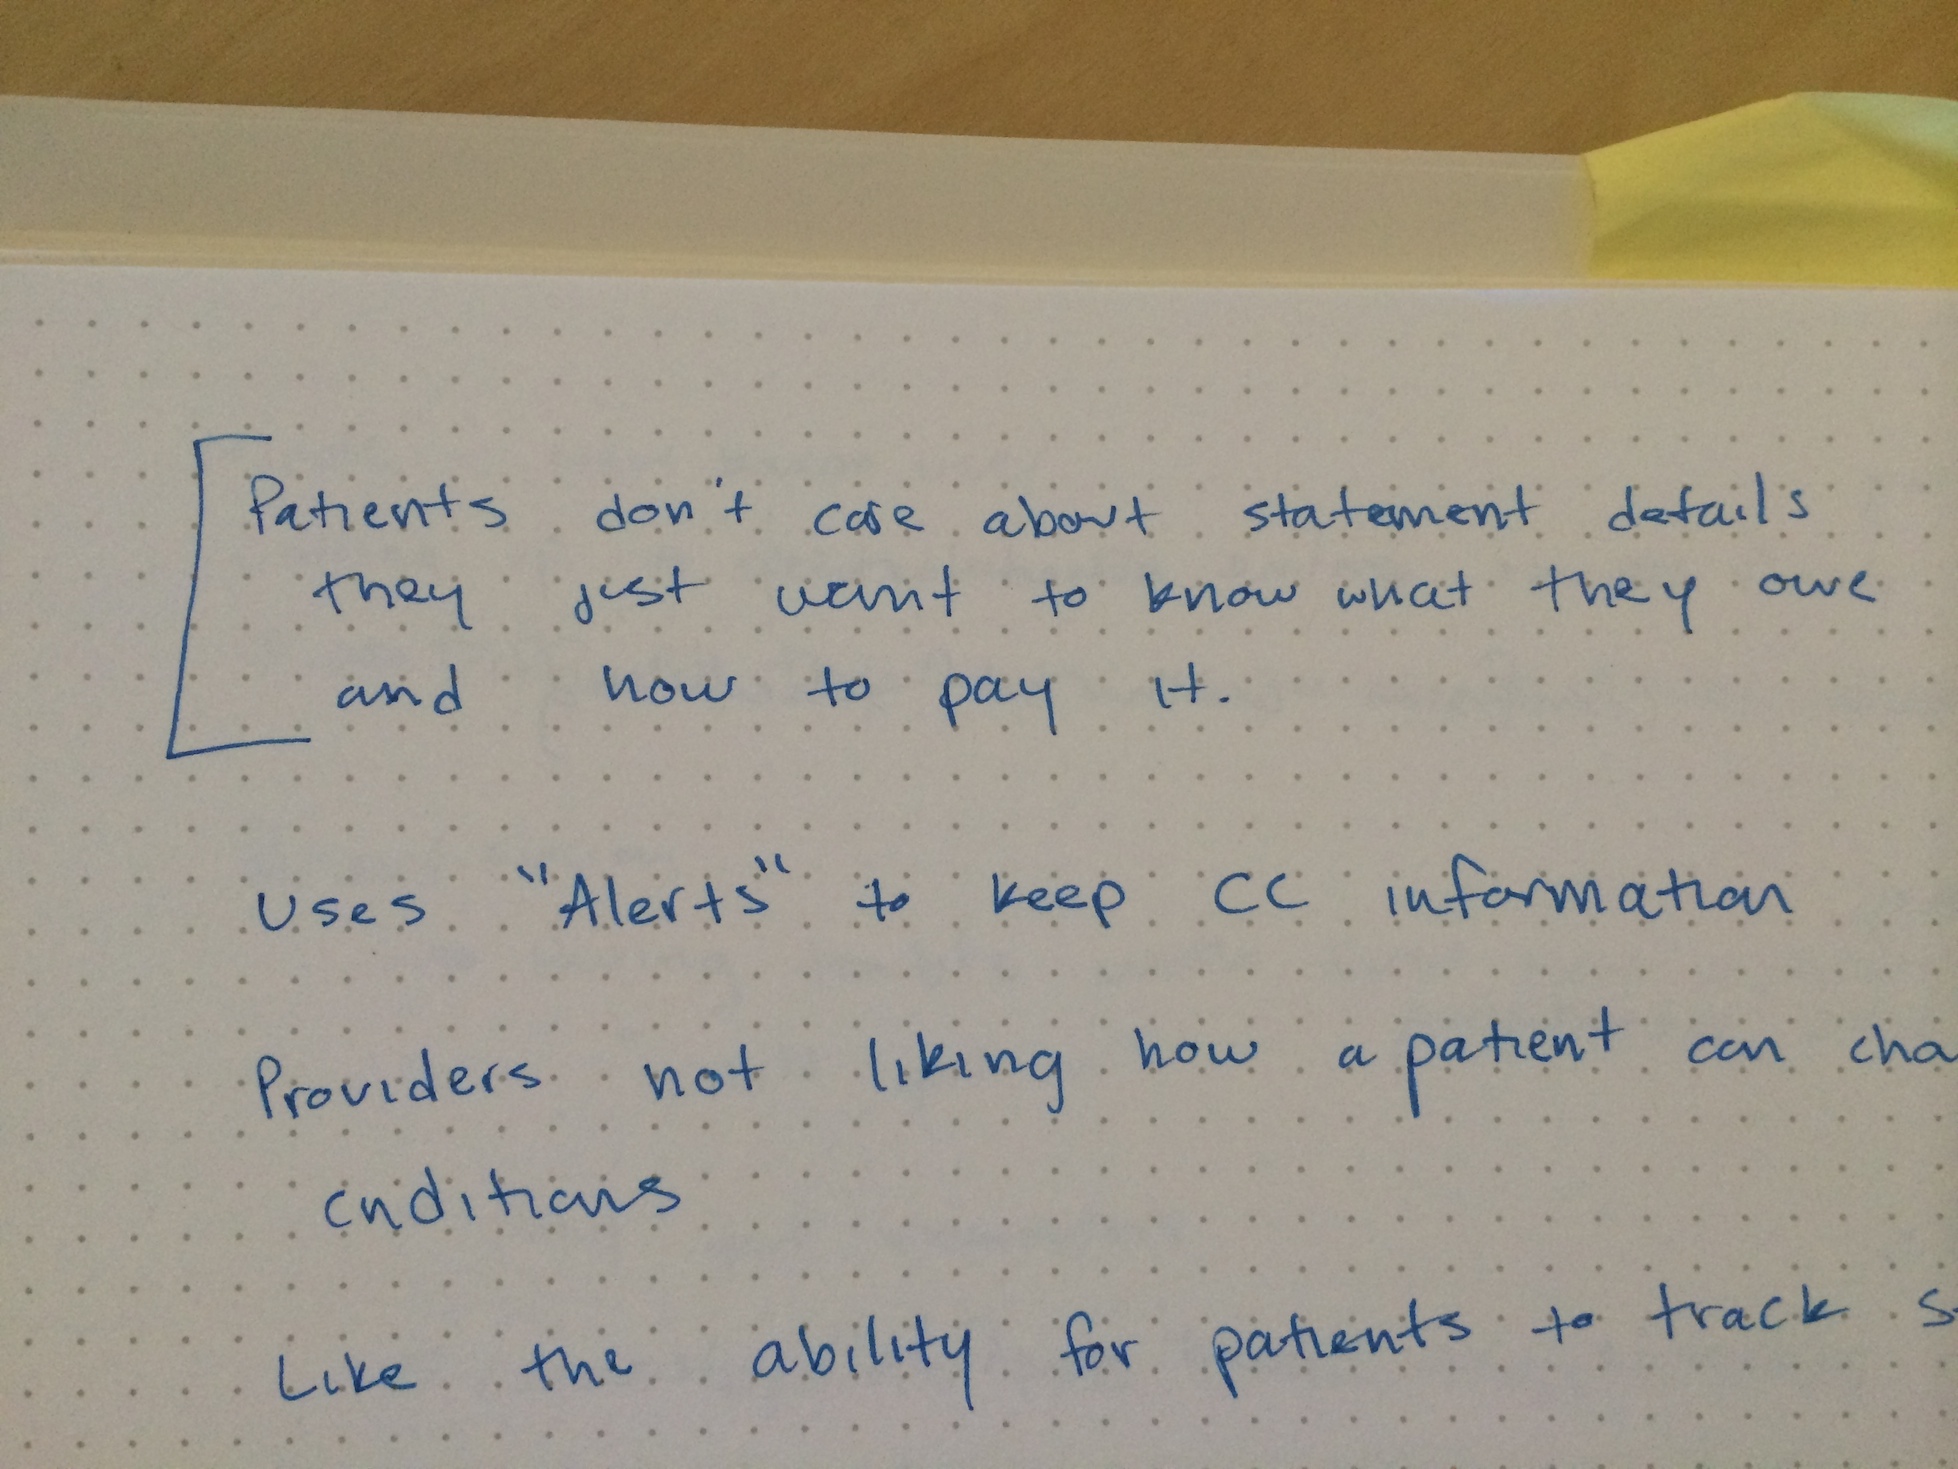 Patients don't care about statement details
they just want to know what they owe
and how to pay it.
Uses "Alerts" to keep CC information
Providers not liking how a patient can cha
cnditions
Like the ability for patients to track s